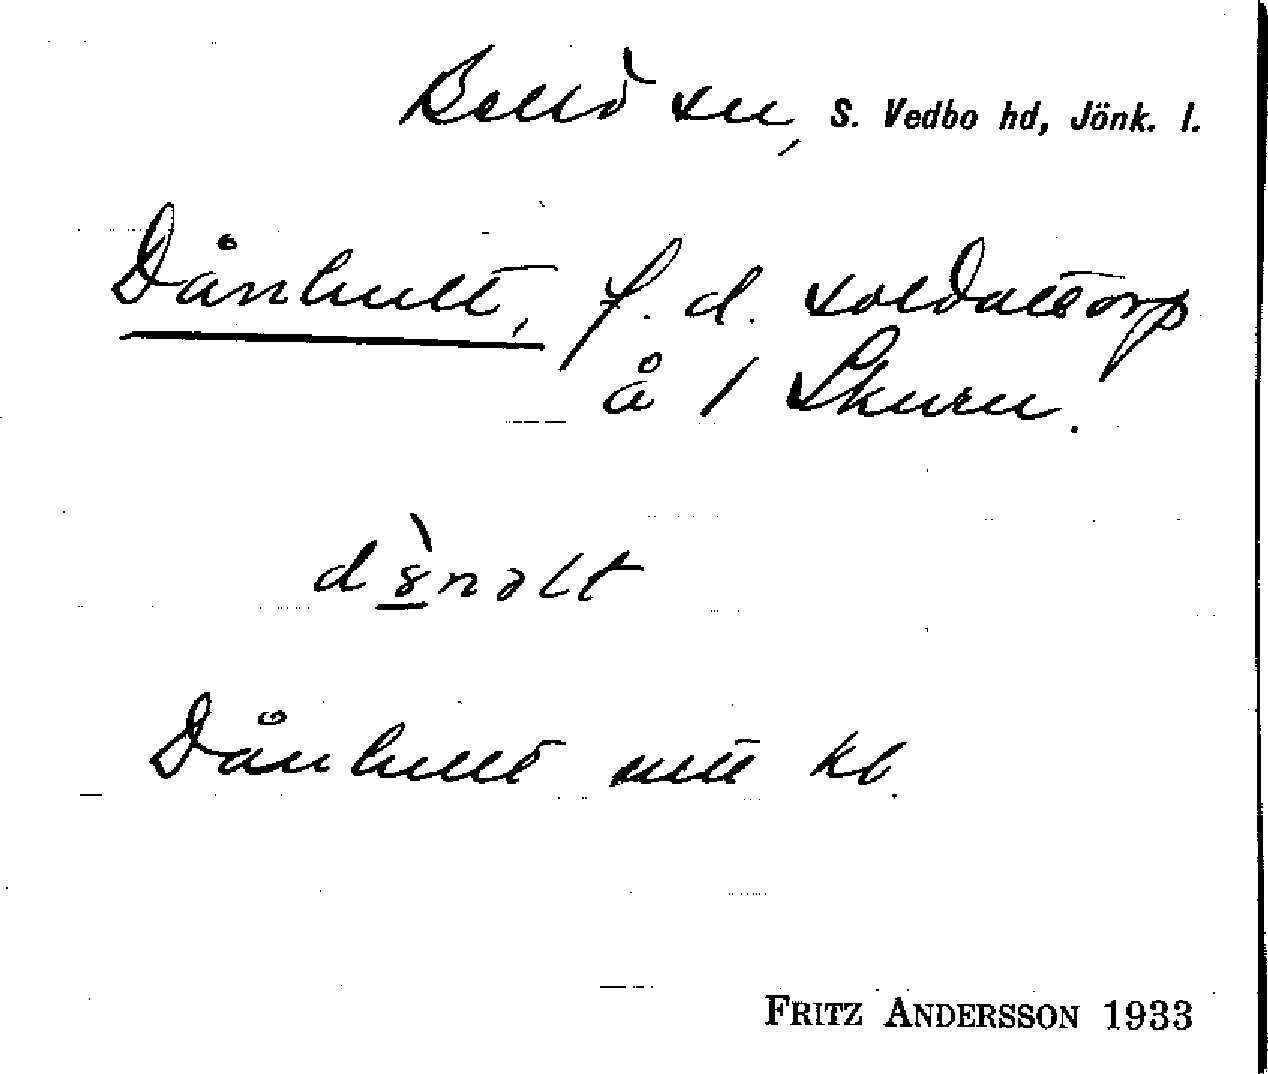 Bellö sn, S. Vedbo hd, Jönk. l.
Dånhult, f. d. soldattorp
å / Skuru.
dånalt
Dånhult mtl kb.
FRITZ ANDERSSON 1933